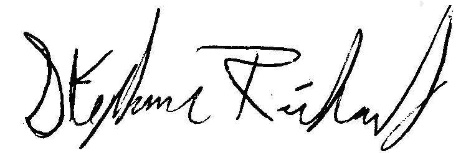 Stephane Richard